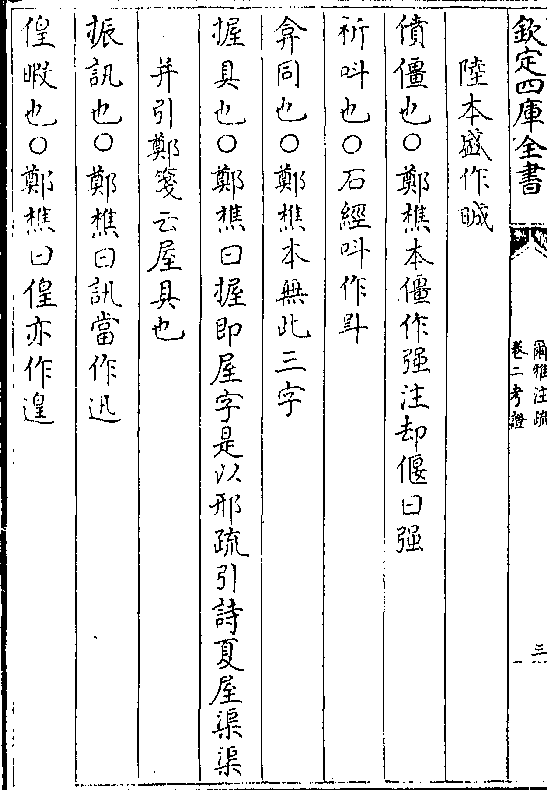 欽定四庫全書
爾雅注疏
卷二考證
三
陸本盛作晠
僨僵也○鄭樵本僵作强注却偃曰强
祈叫也○石經叫作㗊
弇同也○鄭樵本無此三字
握具也○鄭樵曰握即屋字是以邢疏引詩夏屋渠渠
并引鄭箋云屋具也
振訊也○鄭樵曰訊當作迅
偟暇也○鄭樵曰偟亦作遑